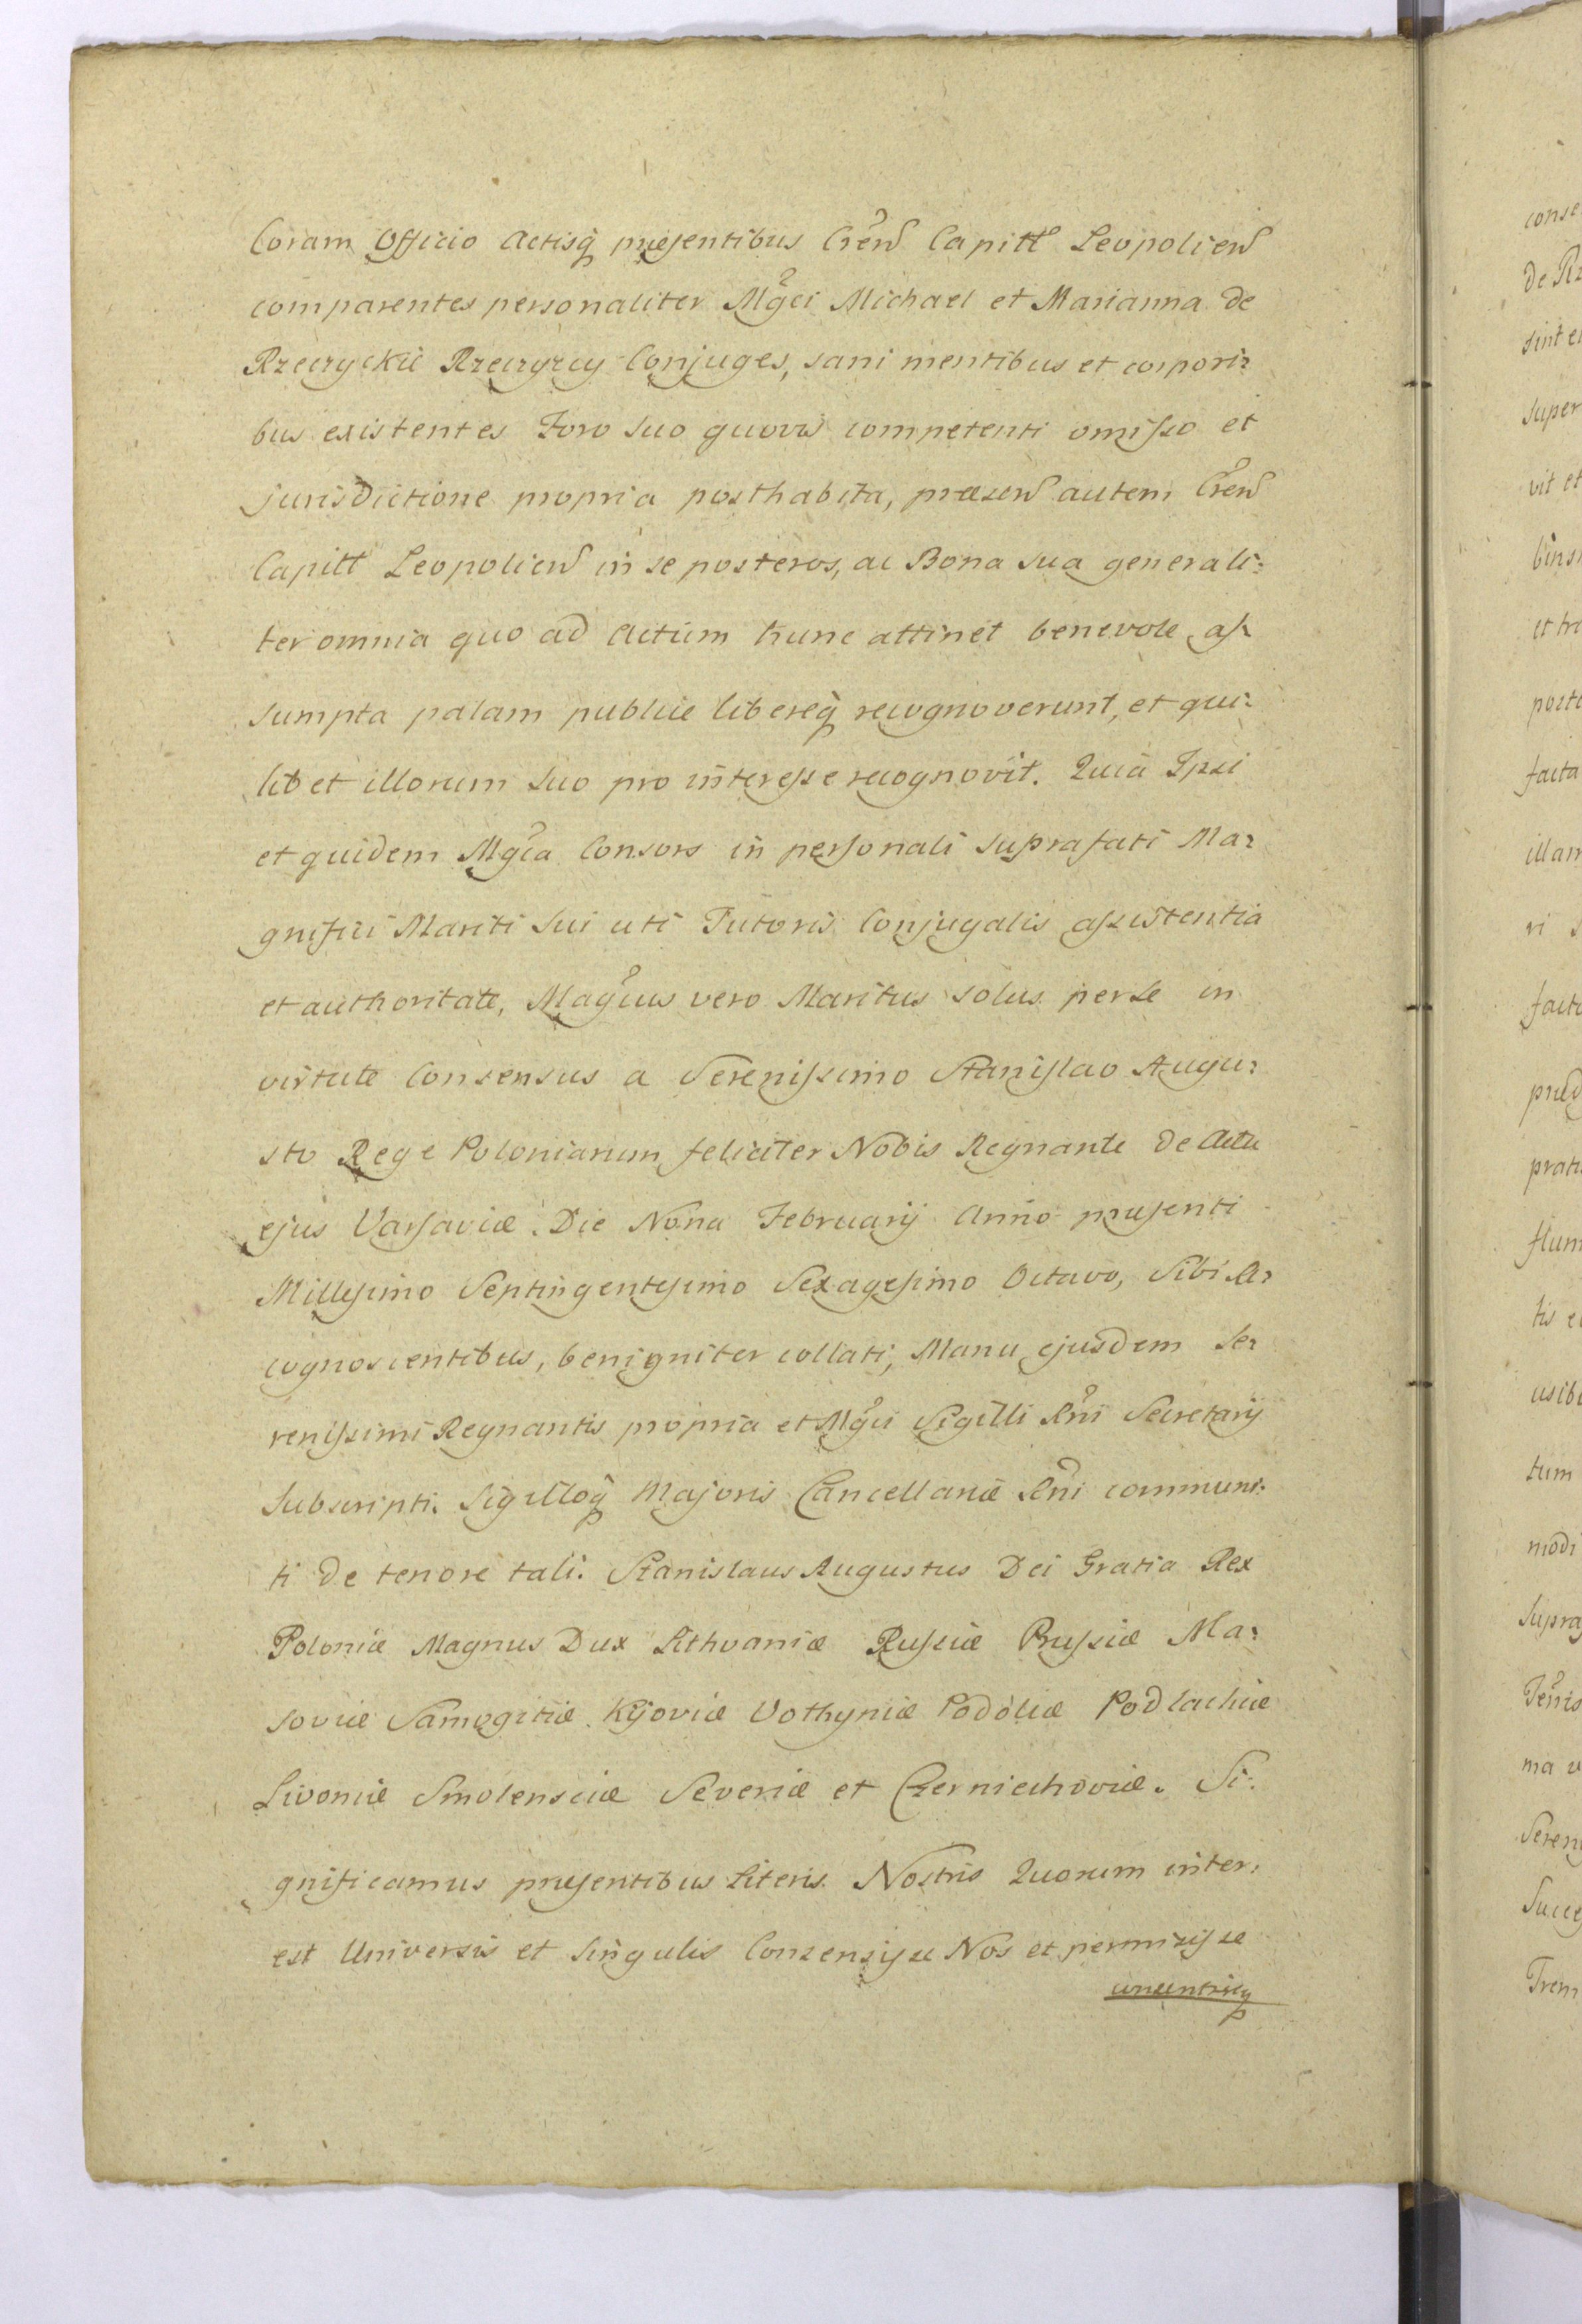 Coram Officio Actisq́ præsentibus Crẽn Capitl Leopolien
comparentes personaliter Mg̃ci Michael et Marianna de
Rzeczyckie Rzeczyccy Conjuges, sani mentibus et corpori:
bus existentes Foro suo quovis competenti omisso et
jurisdictione propria posthabita, præsen autem Crẽn
Capitl Leopolien in se posteros, ac Bona sua generali:
ter omnia quo ad Actum hunc attinet benevole as:
sumpta palam publice libereq́ recognoverunt, et qui:
libet illorum suo pro interesse recognovit. Quia Ipsi
et quidem Mg̃ca Consors in personali suprafati Ma:
gnifici Mariti sui uti Tutoris Conjugalis assistentia
et authoritate, Mag̃cus vero Maritus solus perse in
virtute Consensus a Serenissimo Stanislao Augu:
sto Rege Poloniarum feliciter Nobis Regnante de Actu
ejus Varsaviæ Die Nona Februarij Anno præsenti
Millesimo Septingentesimo Sexagesimo Octavo, Sibi Re:
cognoscentibus, benigniter collati, Manu ejusdem Se:
renissimi Regnantis propria et Mg̃ci Sigilli Rñi Secretarij
subscripti. Sigilloq́ Majoris Cancellariæ Rñi communi:
ti de tenore tali. Stanislaus Augustus Dei Gratia Rex
Poloniæ Magnus Dux Lithvaniæ Russiæ Prussiæ Ma:
soviæ Samogitiæ Kijoviæ Volhyniæ Podoliæ Podlachiæ
Livoniæ Smolensciæ Severiæ et Czerniechoviæ. Si:
gnificamus præsentibus Literis Nostris Quorum inter:
est Universis et singulis Consensisse Nos et permisisse